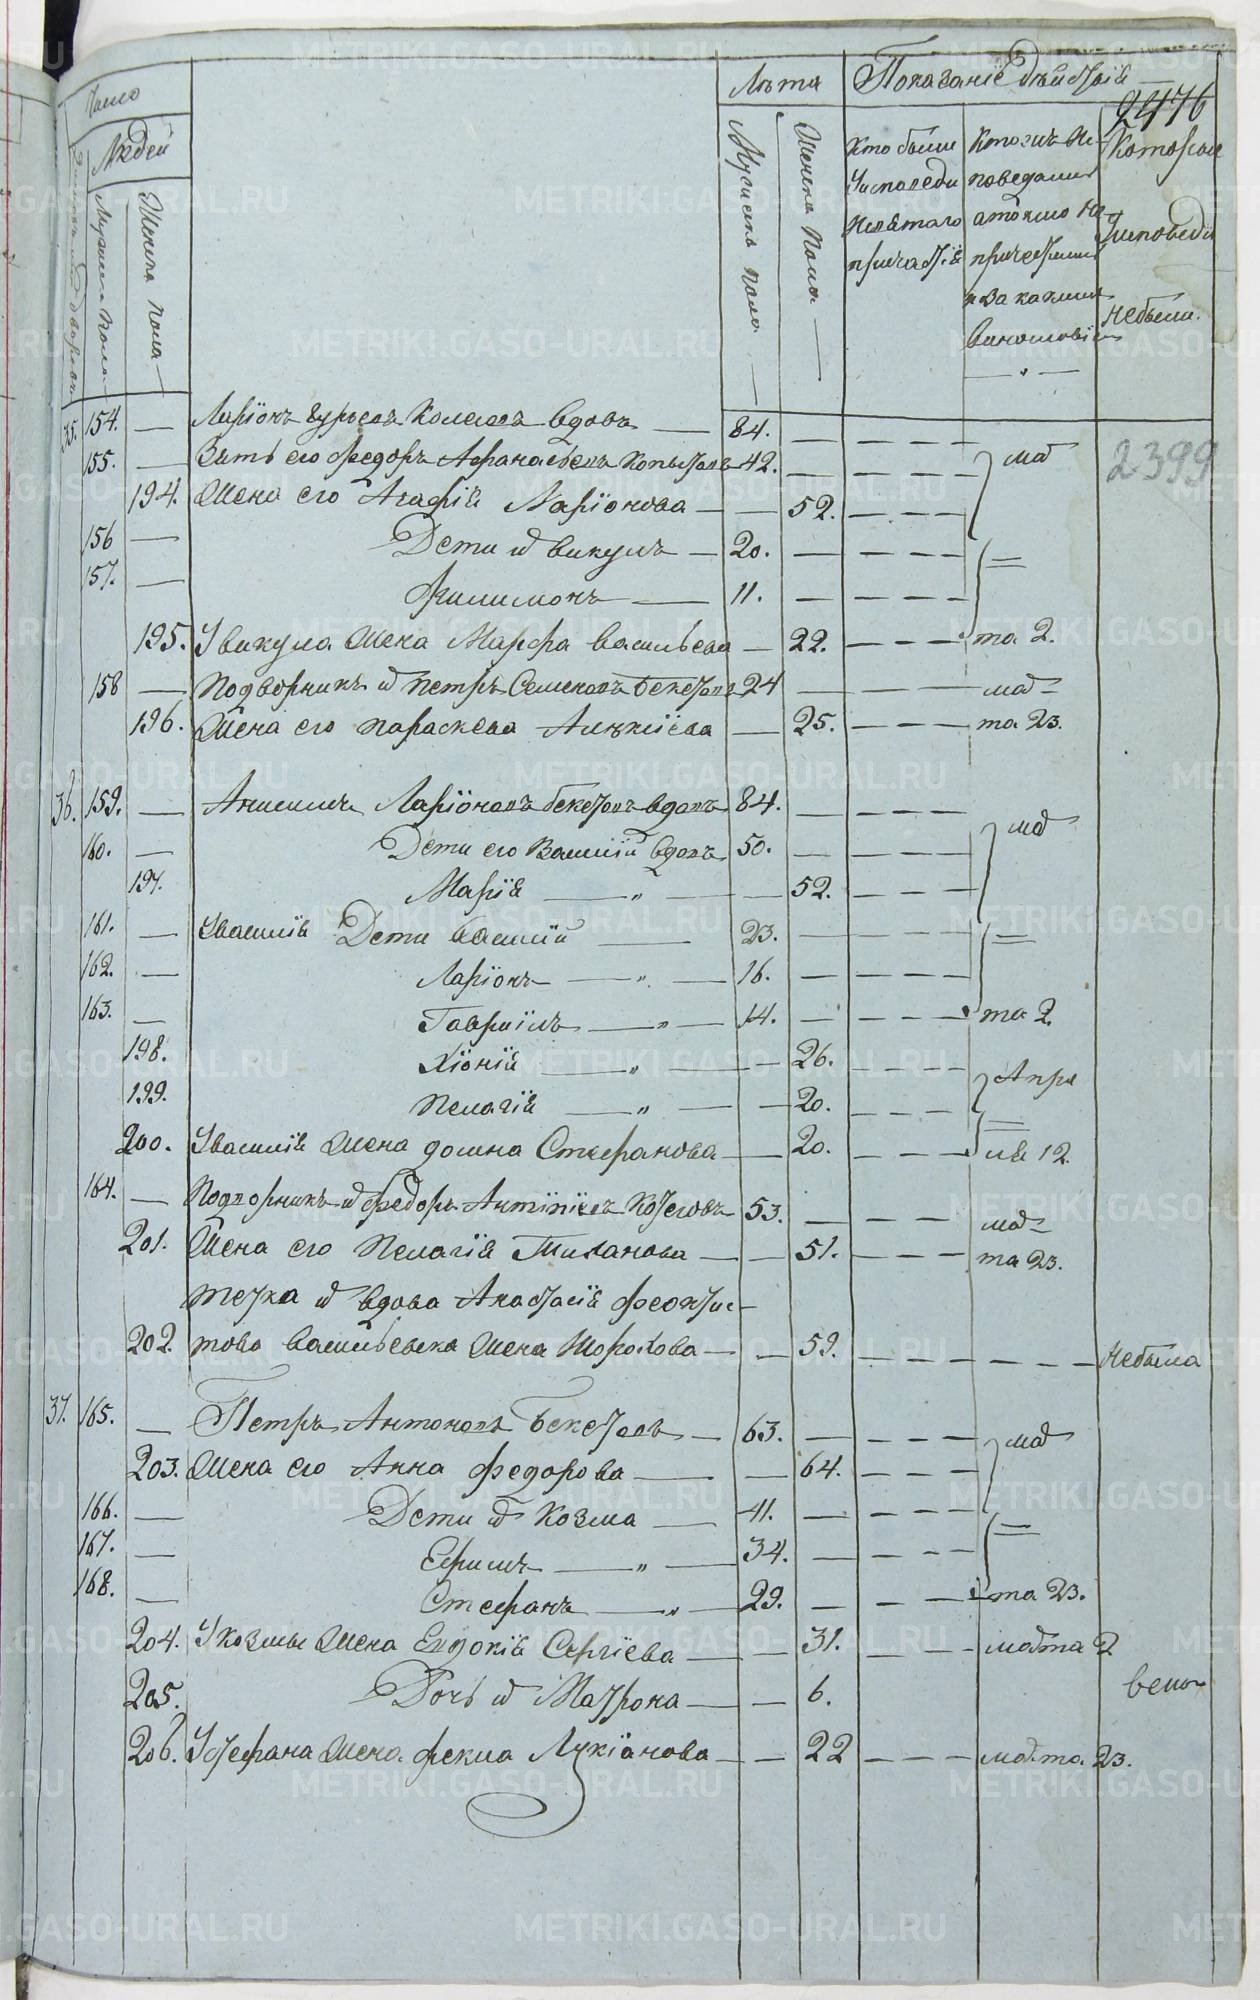 Число
Людей
Мужеска пола
Женска пола
Лѣта
Мужеска пола
Женска пола
Показаніе дѣйствія
2476
Кто были
у исповеди
и святаго
причастія
Кто изъ ис-
поведались
а токмо не
причастились
и за какимъ
винословіемъ
Которые
у исповеди
не были.
2399
35. 154. — Ларіонъ Гурьевъ вдовъ — 84. —
155. — Зять его Федоръ Афанасьевъ Копытовъ 42. — мар
194. Жена его Агафія Ларіонова — — 52.
156 — Дети и Викулъ — 20. —
157. — Филимонъ — 11. —
195. У Викула жена Марфа Васильева — 22. — та 2.
158 — Подворникъ и Петръ Семеновъ Бекетовъ 24 — мар-
196. Жена его Параскева Алексіева — 25. — та 23.
36. 159. — Анисимъ Ларіоновъ Бекетовъ вдовъ 84. — мар
160. — Дети его Василій вдовъ 50. —
197. Марія — „ — — 52.
161. — У Василія Дети Василій — 23. —
162. — Ларіонъ — „ — 16. —
163. — Гавриилъ — „ — 14. — та 2.
198. Хіонія — „ — — 26.
199. Пелагія — „ — — 20. Апре
200. У Василія жена Домна Стефанова — 20. — ля 12.
164. — Подворникъ и Федоръ Антипіевъ 53. — мар-
201. Жена его Пелагія — — 51. — та 23.
Тетка и вдова Анастасія Феоктис-
202. това Васильевска жена Шорохова — — 59. — не была
37. 165. — Петръ Антоновъ Бекетовъ — 63. — мар
203. Жена его Анна Федорова — — 64.
166. — Дети и Козма — 41. —
167. — Ефимъ — „ — 34. —
168. — Стефанъ — „ — 29. — та 23.
204. У Козмы жена Евдокія Сергіева — — 31. — марта 2
205. Дочь и Матрона — — 6.
206. У Стефана жена Фекла Лукіанова — — 22 — марта. 23.